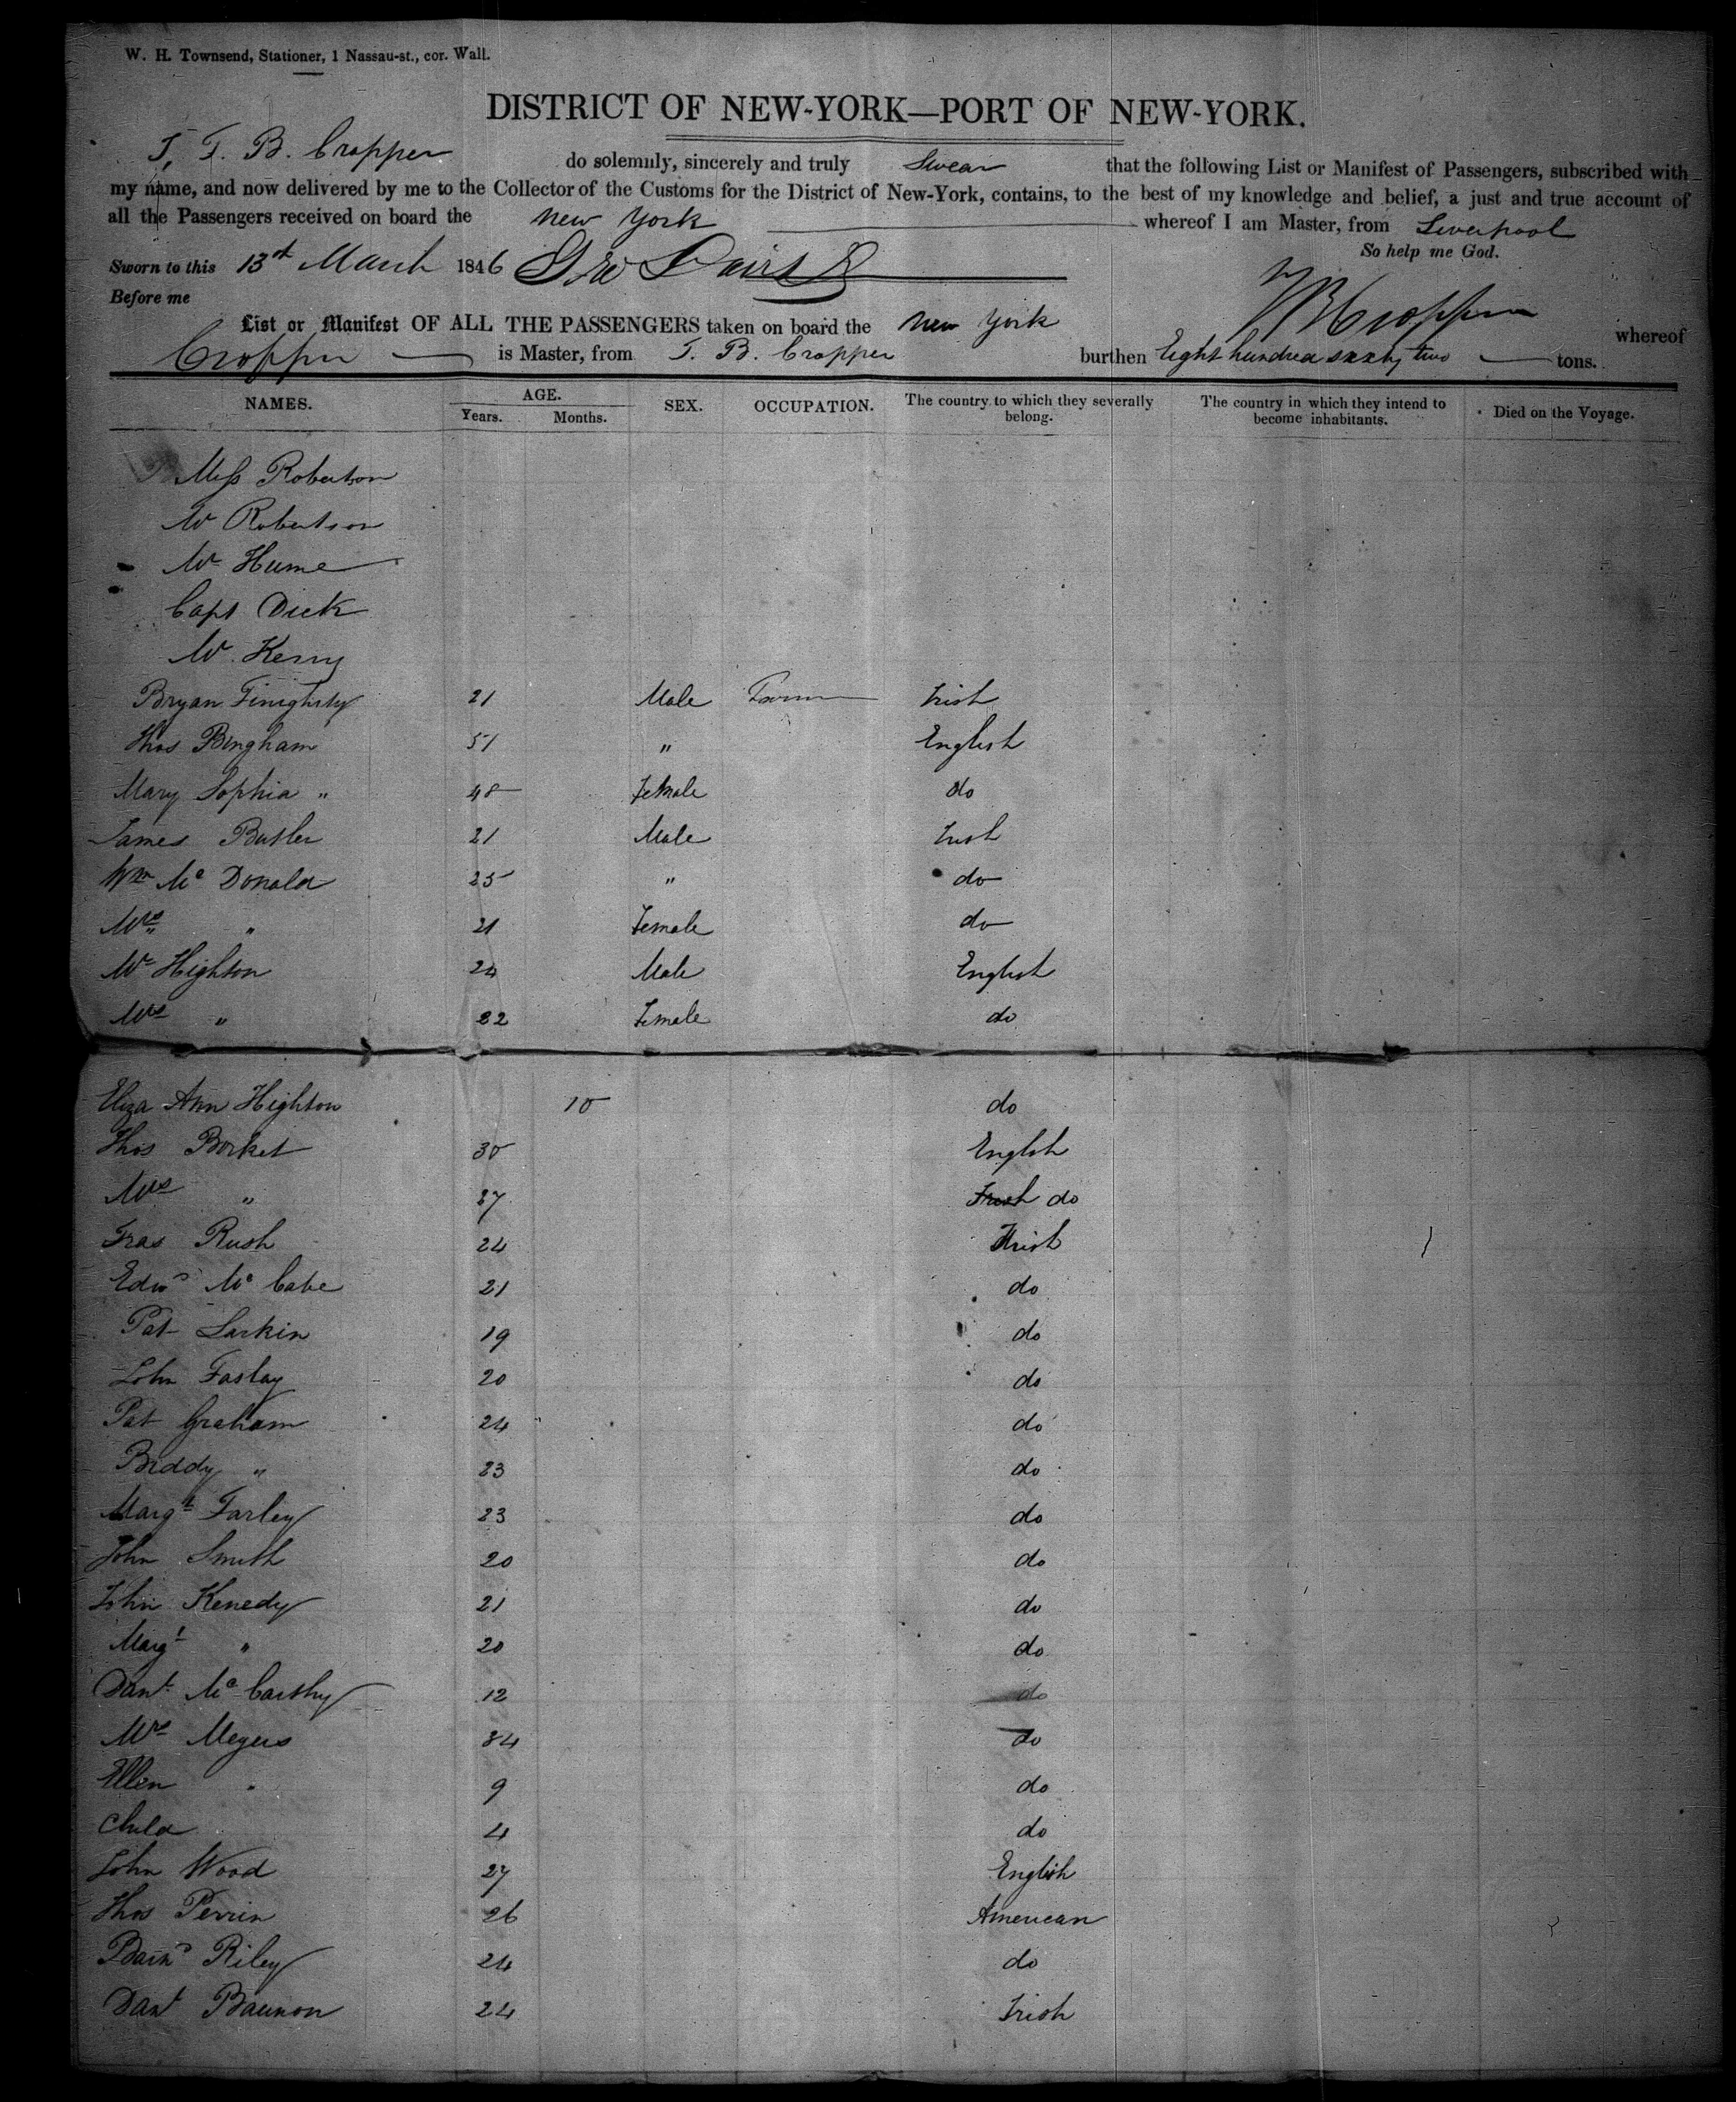 W. H. Townsend, Stationer, 1 Nassau-st., cor. Wall.
DISTRICT OF NEW-YORK—PORT OF NEW-YORK.
I, T. B. Cropper do solemnly, sincerely and truly Swear that the following List or Manifest of Passengers, subscribed with
my name, and now delivered by me to the Collector of the Customs for the District of New-York, contains, to the best of my knowledge and belief, a just and true account of
all the Passengers received on board the New York whereof I am Master, from Liverpool
So help me God.
Sworn to this 13th March 1846 Geo Davis
Before me TBCropper
List or Manifest OF ALL THE PASSENGERS taken on board the New York whereof
Cropper is Master, from T. B. Cropper burthen Eight hundred sixty two tons.
NAMES. AGE. Years. Months. SEX. OCCUPATION. The country to which they severally belong. The country in which they intend to become inhabitants. Died on the Voyage.
Miss Robertson
Mr Robertson
Mr Hume
Capt Dick
Mr Kerry
Bryan Finighty 21 Male Farmer Irish
Thos Bingham 51 " English
Mary Sophia " 48 Female do
James Butler 21 Male Irish
Wm Mc Donald 25 " do
Mrs " 21 Female do
Mr Highton 24 Male English
Mrs " 22 Female do
Eliza Ann Highton 10 do
Thos Borket 30 English
Mrs " 27 Irish do
Fras Rush 24 Irish
Edwd Mc Cabe 21 do
Pat Larkin 19 do
John Farley 20 do
Pat Graham 24 do
Biddy " 23 do
Margt Farley 23 do
John Smith 20 do
John Kenedy 21 do
Margt " 20 do
Danl Mc Carthy 12 do
Mrs Meyers 34 do
Ellen " 9 do
Child 4 do
John Wood 27 English
Thos Perrin 26 American
Barnd Riley 24 do
Danl Baunon 24 Irish